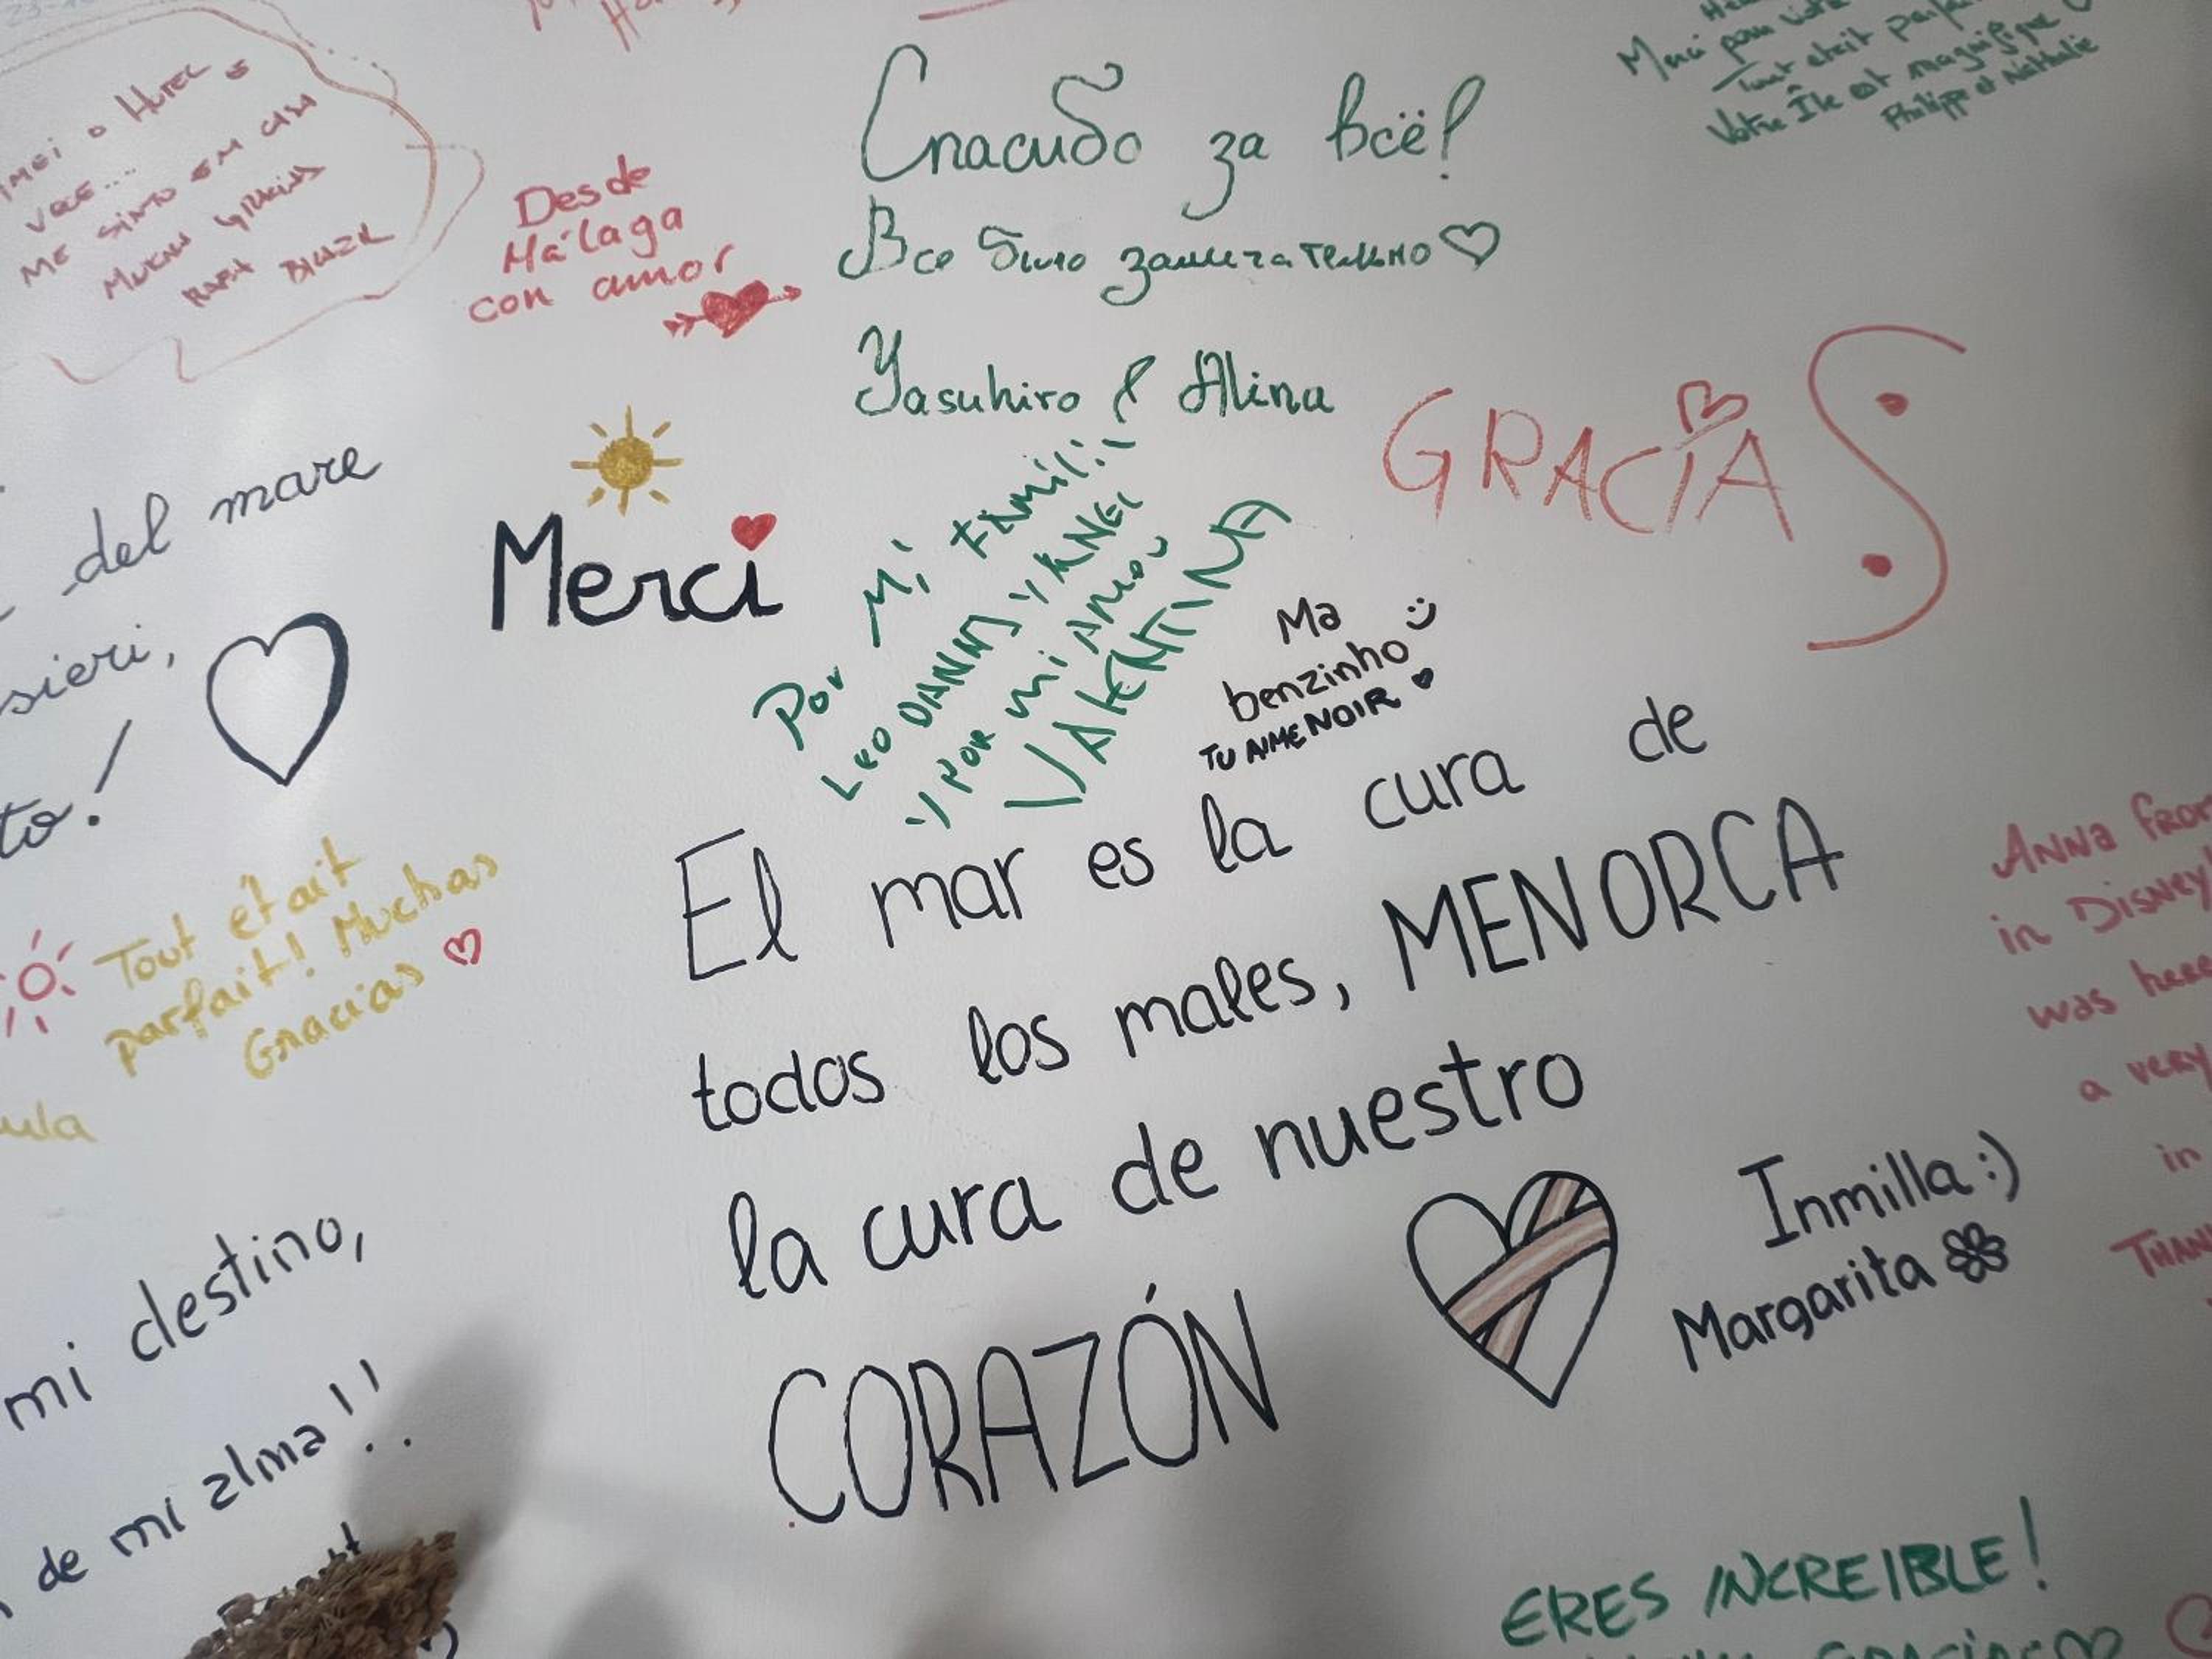 HOTEL
ME SINTO EM CASA
Desde
Málaga
con amor
Спасибо за всё!
Все было замечательно
Yasuhiro & Alina
Merci pour
Tout était
Votre Île est magnifique
Philippe et Nathalie
GRACIAS
del mare
sieri,
to!
Merci
Por Mi
LEO DANNY Y
Y POR mi AMOR
VALENTINA
Ma
benzinho
TU AIME NOIR
Tout était
parfait! Muchas
Gracias
ula
El mar es la cura de
todos los males, MENORCA
la cura de nuestro
CORAZÓN
Inmilla :)
Margarita
Anna from
in Disney
was here
a very
in
THAN
mi destino,
de mi alma!!
ERES INCREIBLE!
GRACIAS